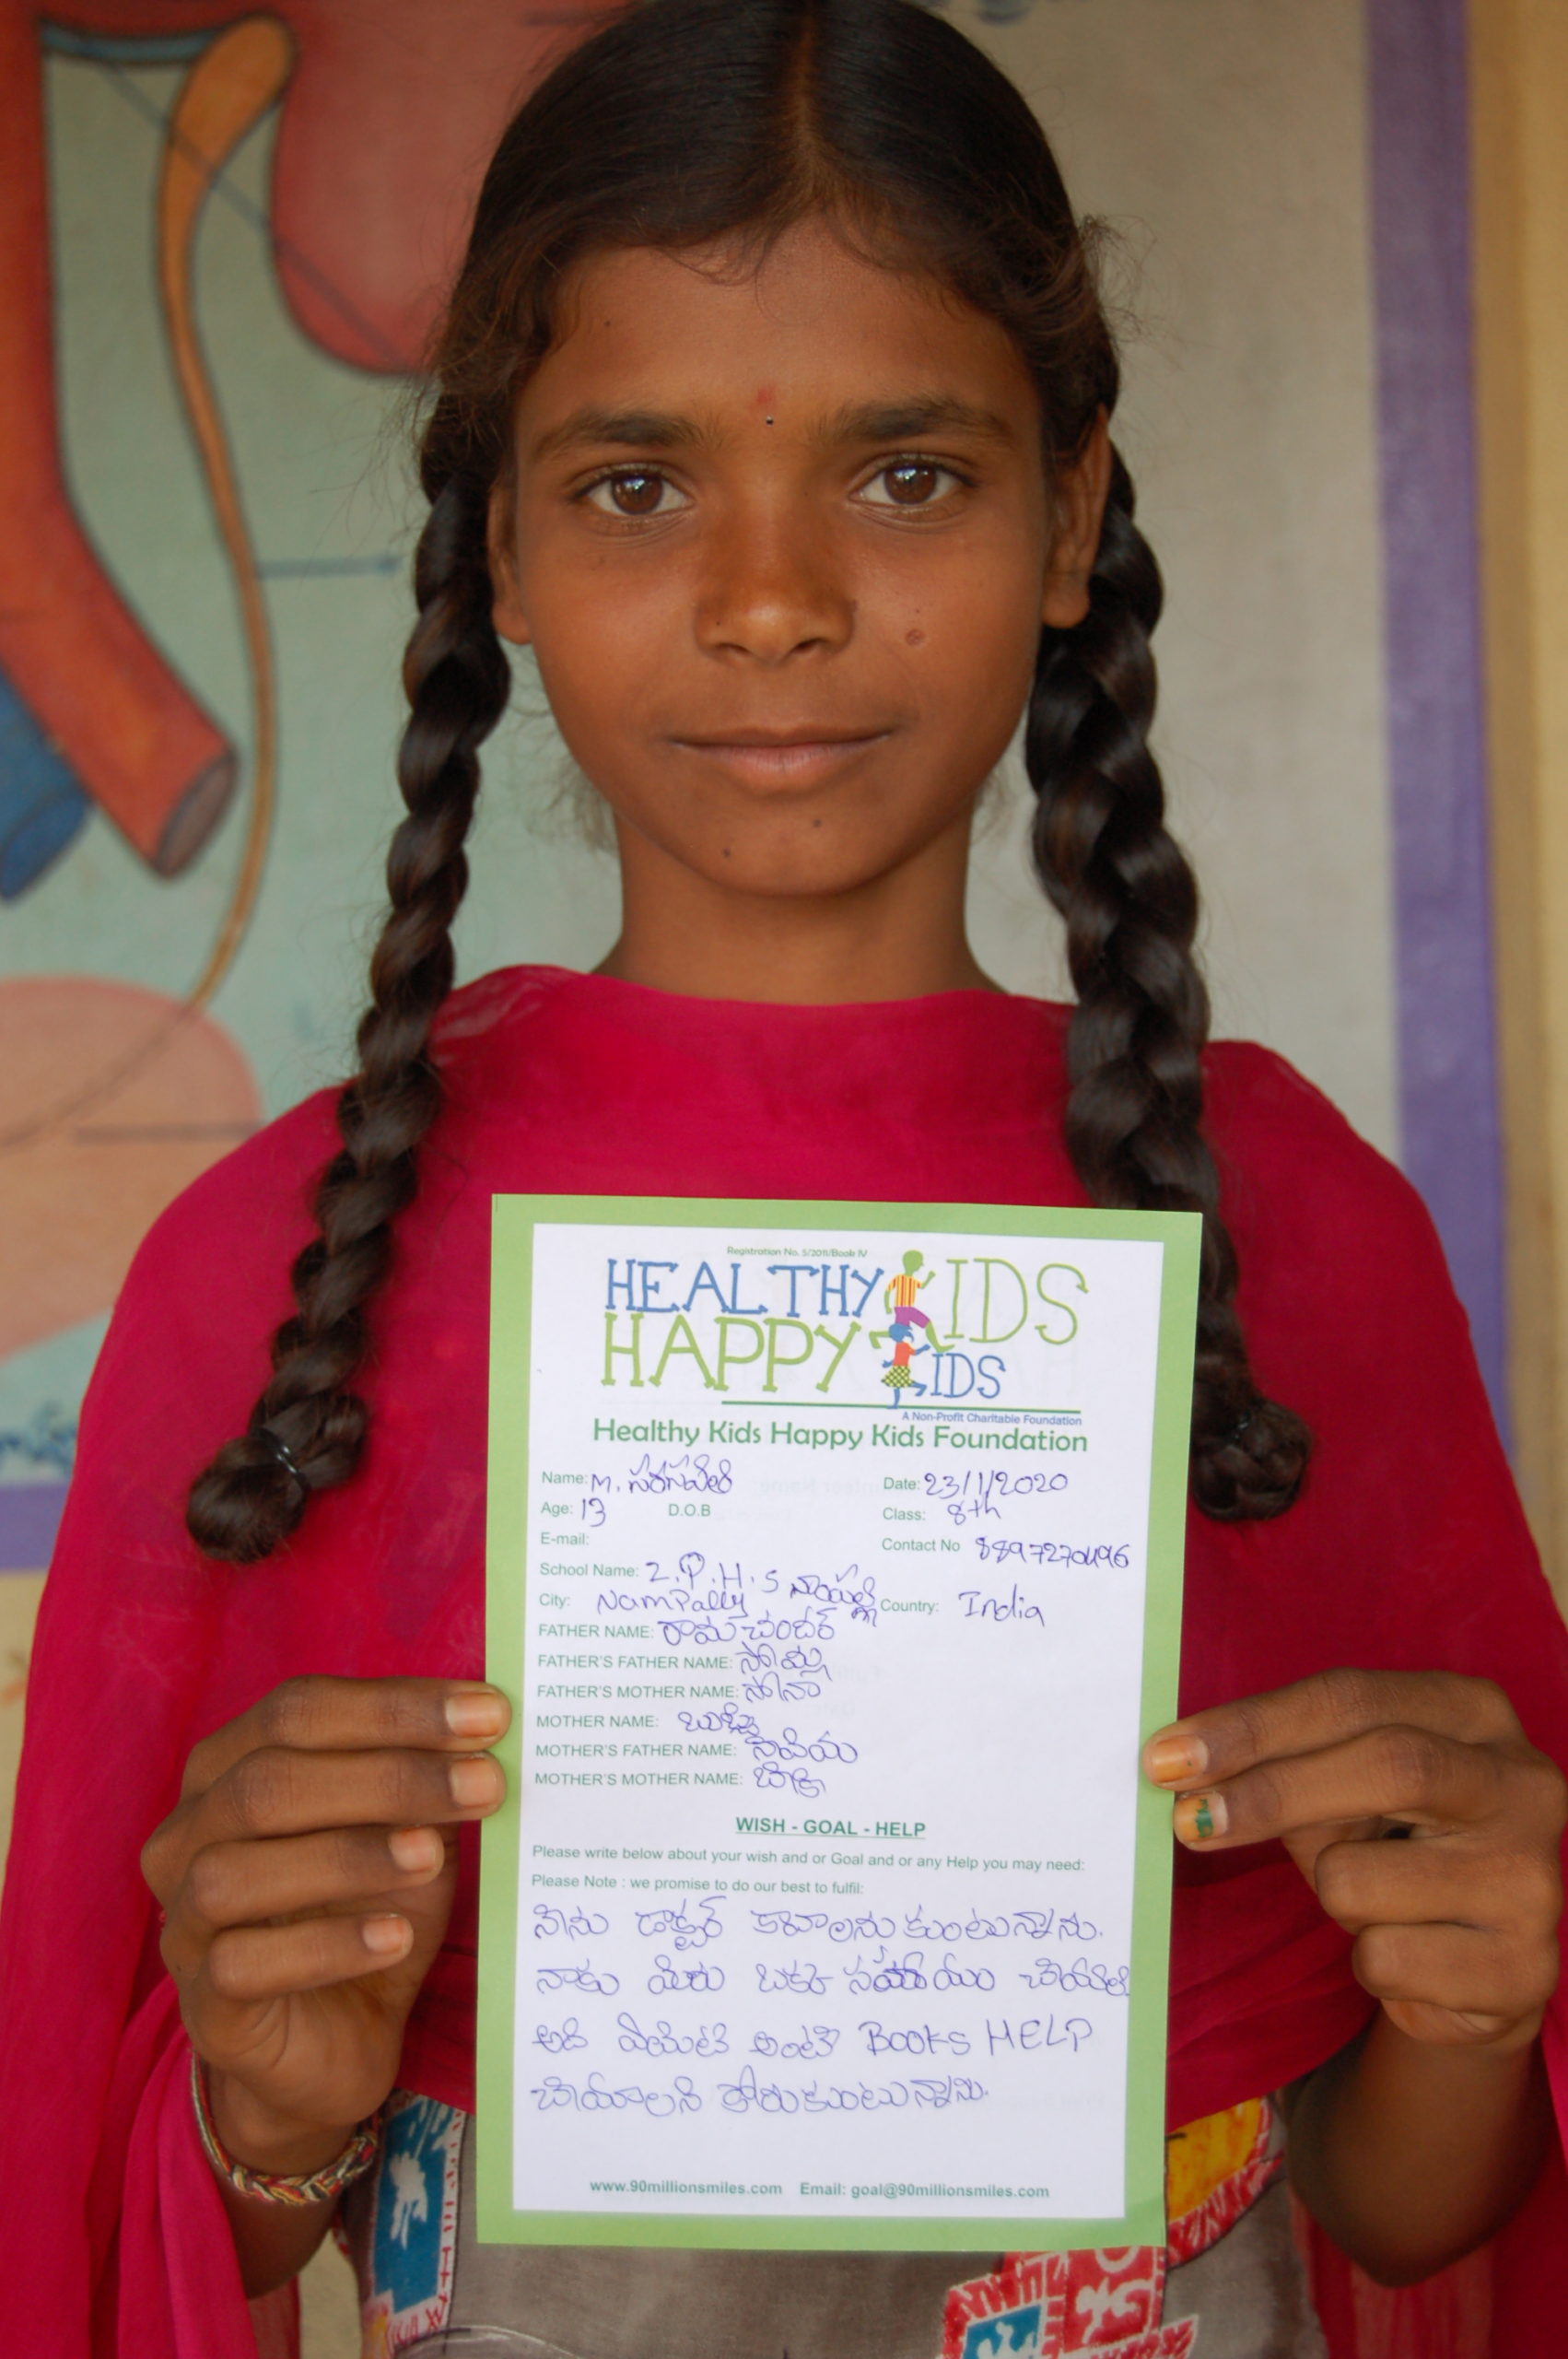 Registration No. 5/2011/Book IV
HEALTHY KIDS
HAPPY KIDS
A Non-Profit Charitable Foundation
Healthy Kids Happy Kids Foundation
Name: M. సరస్వతి Date: 23/1/2020
Age: 13 D.O.B Class: 8th
E-mail: Contact No 8897270496
School Name: Z.P.H.S నాంపల్లి
City: Nampally Country: India
FATHER NAME: రామచందర్
FATHER'S FATHER NAME: సోమ్ల
FATHER'S MOTHER NAME: సోనా
MOTHER NAME: బుజ్జి
MOTHER'S FATHER NAME:
MOTHER'S MOTHER NAME:
WISH - GOAL - HELP
Please write below about your wish and or Goal and or any Help you may need:
Please Note : we promise to do our best to fulfil:
నేను డాక్టర్ కావాలనుకుంటున్నాను.
నాకు మీరు ఒక్క సహాయం చేయాలి
అది ఏమిటి అంటే BOOKS HELP
చేయాలని కోరుకుంటున్నాను.
www.90millionsmiles.com Email: goal@90millionsmiles.com